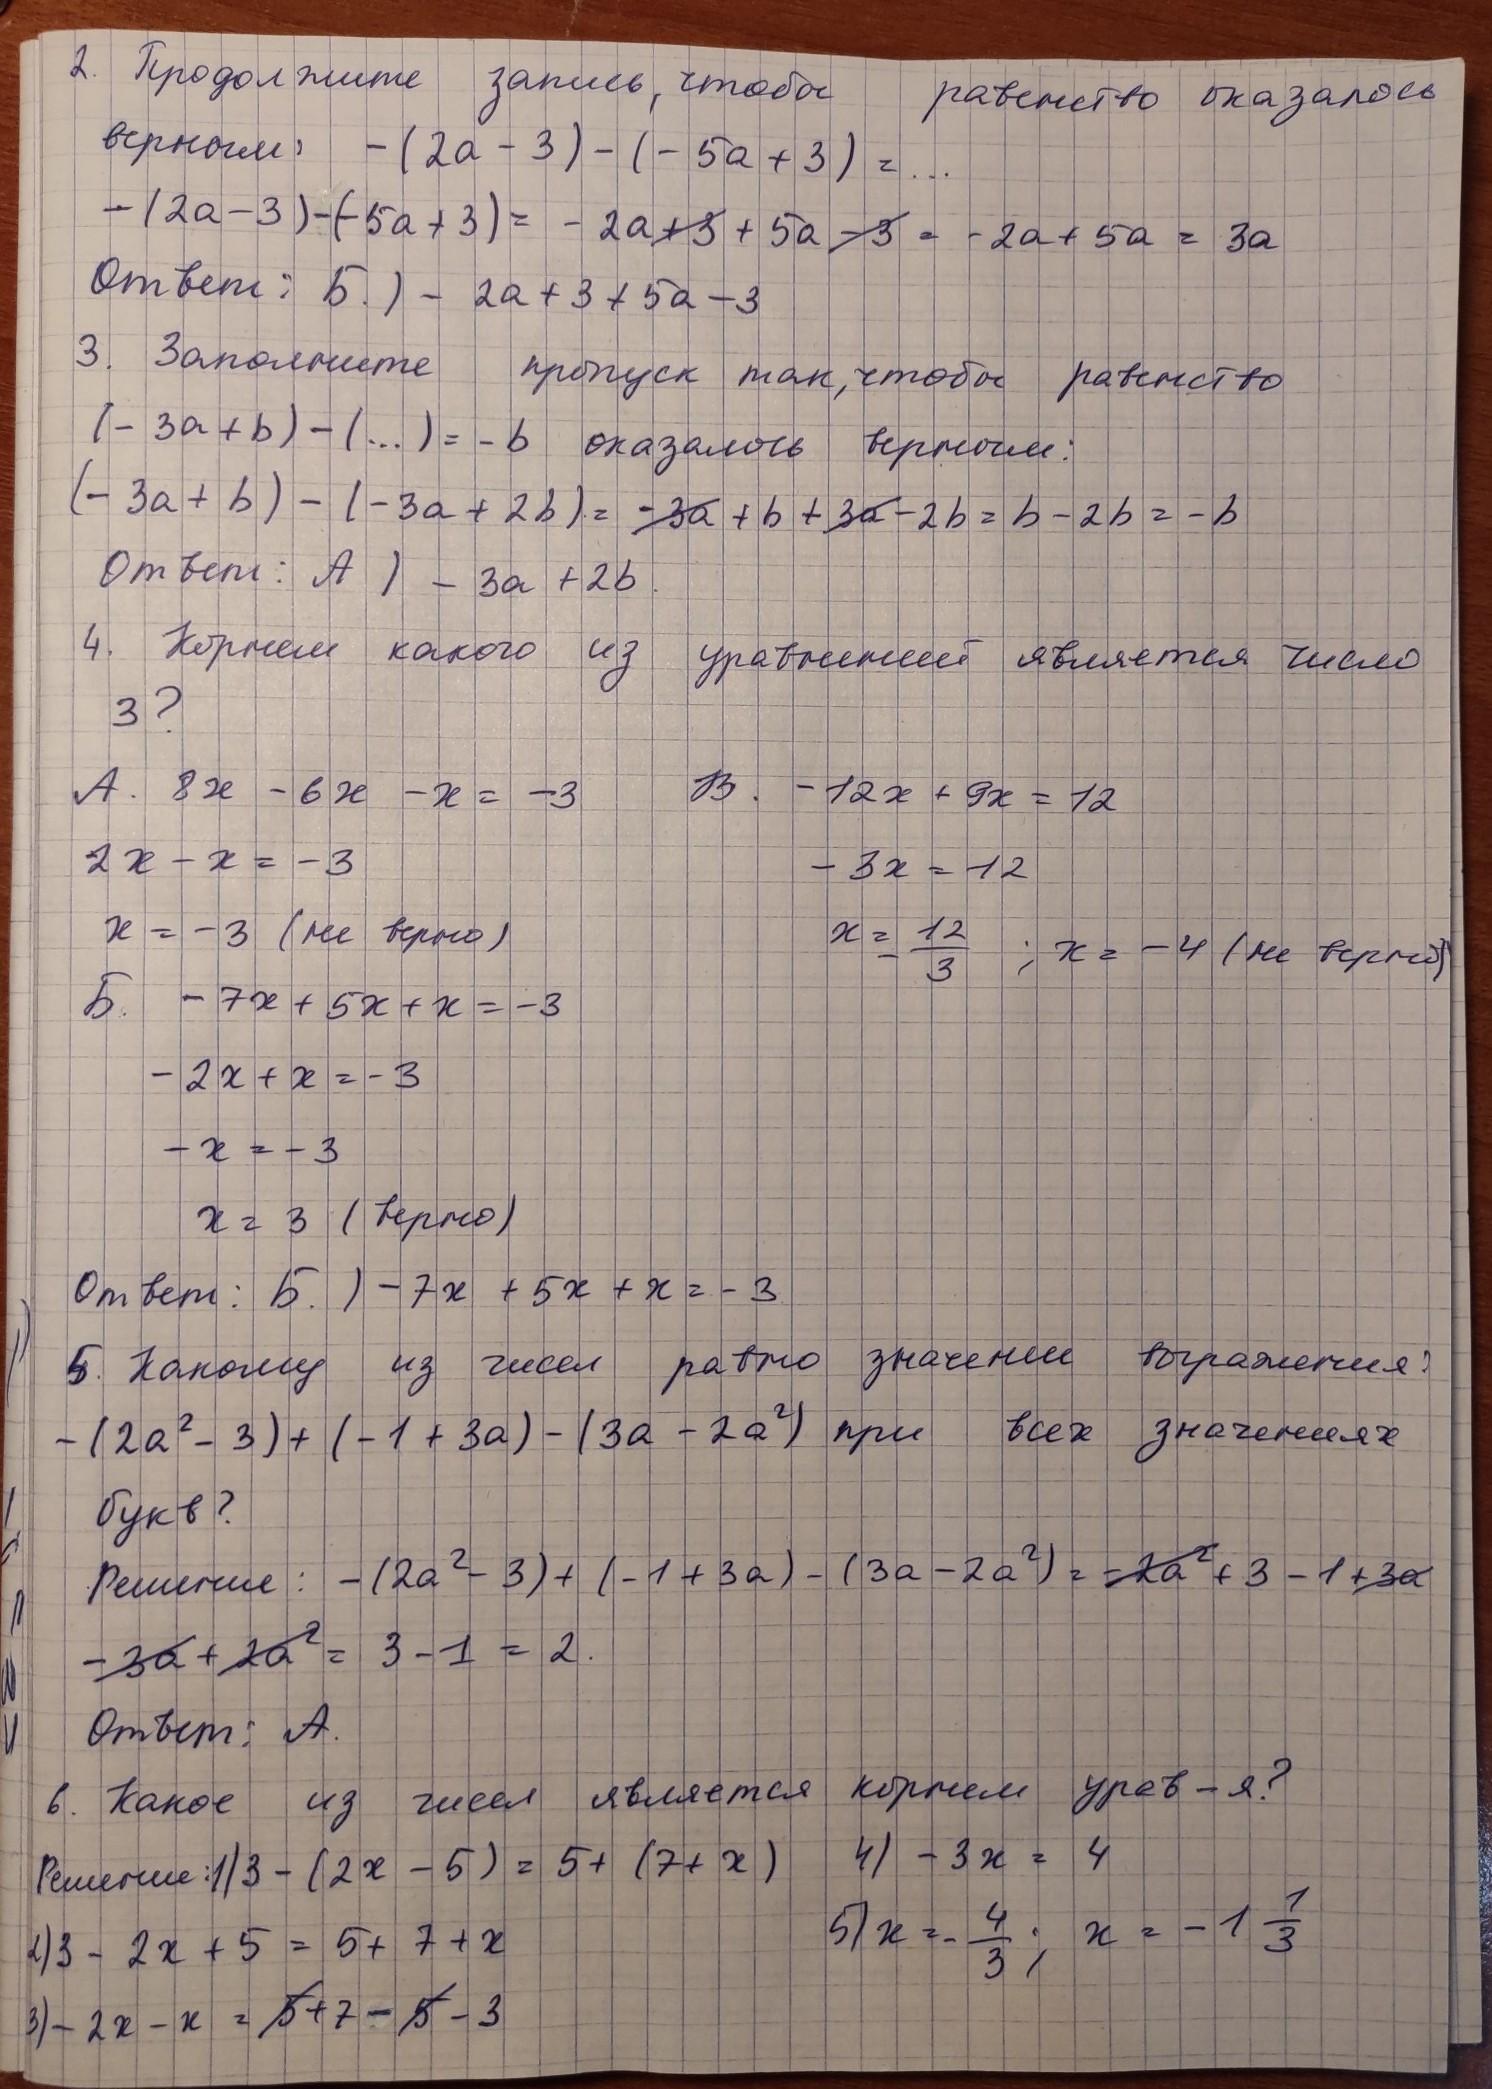 2. Продолжите запись, чтобы равенство оказалось
верным: -(2a-3)-(-5a+3)=...
-(2a-3)-(-5a+3)= -2a+3+5a-3= -2a+5a=3a
Ответ: Б.) -2a+3+5a-3
3. Заполните пропуск так, чтобы равенство
(-3a+b)-(...)=-b оказалось верным:
(-3a+b)-(-3a+2b)=-3a+b+3a-2b=b-2b=-b
Ответ: А) -3a+2b.
4. Корнем какого из уравнений является число
3?
А. 8x-6x-x=-3
2x-x=-3
x=-3 (не верно)
Б. -7x+5x+x=-3
-2x+x=-3
-x=-3
x=3 (верно)
В. -12x+9x=12
-3x=12
x=-12/3; x=-4 (не верно)
Ответ: Б.) -7x+5x+x=-3
5. Какому из чисел равно значении выражения:
-(2a²-3)+(-1+3a)-(3a-2a²) при всех значениях
букв?
Решение: -(2a²-3)+(-1+3a)-(3a-2a²)=-2a²+3-1+3a
-3a+2a²=3-1=2.
Ответ: А.
6. Какое из чисел является корнем урав-я?
Решение: 1)3-(2x-5)=5+(7+x)
2)3-2x+5=5+7+x
3)-2x-x=5+7-5-3
4) -3x=4
5)x=-4/3; x=-1 1/3